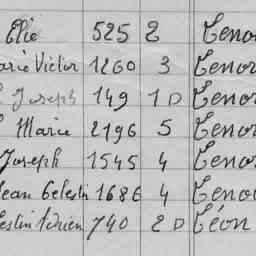 Elie 525 2 Teno
arie Victor 1260 3 Tenor
Joseph 149 1 D Tenor
Marie 2196 5 Tenor
Joseph 1545 4 Tenor
Jean Celestin 1686 4 Teno
lestin Adrien 740 2 D Léon